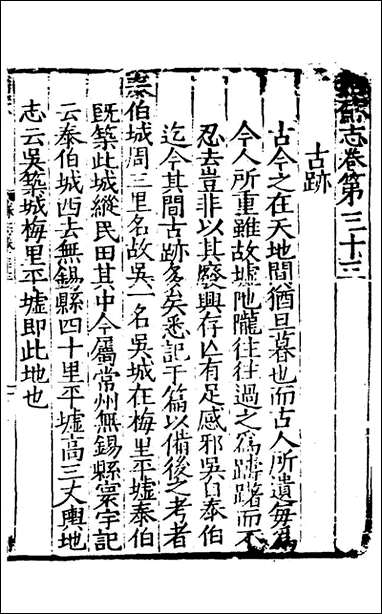 蘇志卷第三十三
古跡
古今之在天地間猶旦暮也而古人所遺每爲
今人所重雖故墟地隴往往過之爲躊躇而不
忍去豈非以其廢興存亾有足感邪吳自泰伯
迄今其間古跡多矣悉記于篇以備後之考者
泰伯城周三里名故吳一名吳城在梅里平墟泰伯
旣築此城縱民田其中今屬常州無錫縣寰宇記
云泰伯城西去無錫縣四十里平墟高三丈輿地
志云吳築城梅里平墟即此地也